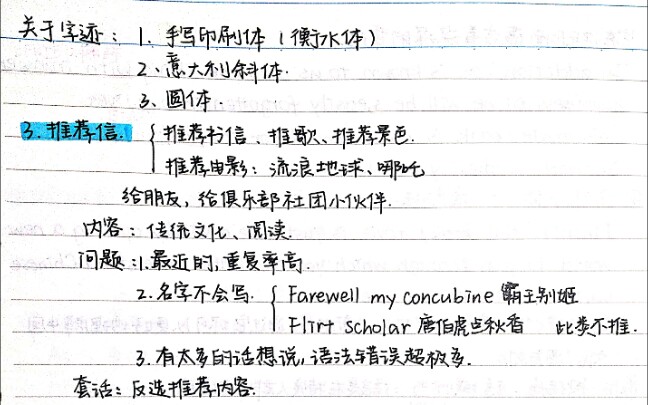 关于字迹：1. 手写印刷体（衡水体）
2、意大利斜体.
3、圆体.
3. 推荐信. { 推荐书信、推歌、推荐景色.
推荐电影：流浪地球、哪吒
给朋友，给俱乐部社团小伙伴.
内容：传统文化、阅读.
问题：1.最近的，重复率高.
2.名字不会写. { Farewell my concubine 霸王别姬
Flirt Scholar 唐伯虎点秋香 此类不推.
3.有太多的话想说，语法错误超极多.
套话：反选推荐内容.